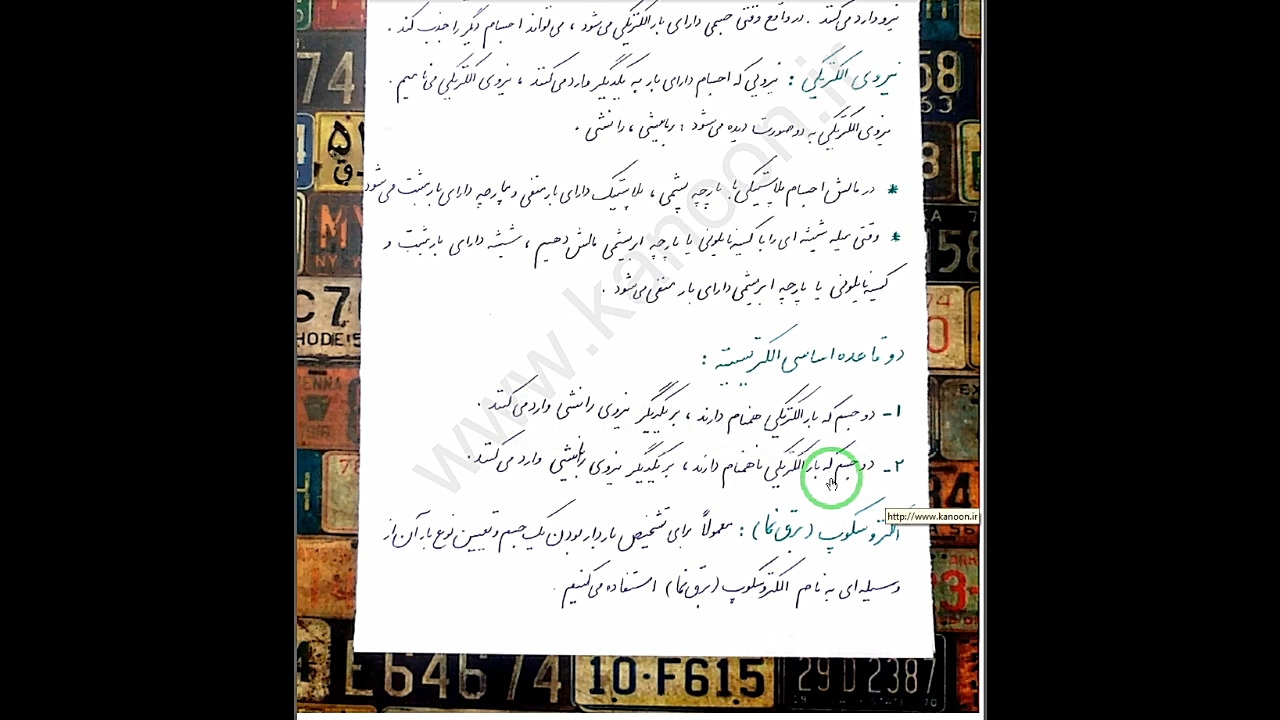 نیرو وارد می‌کنند . در واقع وقتی جسمی دارای بار الکتریکی می‌شود ، می‌تواند اجسام دیگر را جذب کند .
نیروی الکتریکی : نیرویی که اجسام دارای بار به یکدیگر وارد می‌کنند ، نیروی الکتریکی می‌نامیم .
نیروی الکتریکی به دو صورت دیده می‌شود : ربایشی ، رانشی .
* در مالش اجسام پلاستیکی با پارچه پشمی ، پلاستیک دارای بار منفی و پارچه دارای بار مثبت می‌شود
* وقتی میله شیشه ای را با کیسه نایلونی یا پارچه ابریشمی مالش دهیم ، شیشه دارای بار مثبت و
کیسه نایلونی یا پارچه ابریشمی دارای بار منفی می‌شود .
دو قاعده اساسی الکتریسیته :
۱- دو جسم که بار الکتریکی همنام دارند ، بر یکدیگر نیروی رانشی وارد می‌کنند .
۲- دو جسم که بار الکتریکی ناهمنام دارند ، بر یکدیگر نیروی ربایشی وارد می‌کنند .
http://www.kanoon.ir
الکتروسکوپ (برق نما) : معمولاً برای تشخیص باردار بودن یک جسم و تعیین نوع بار آن از
وسیله‌ای به نام الکتروسکوپ (برق نما) استفاده می‌کنیم .
www.kanoon.ir
74
58
63
MY
NY
158
C7
RHODE IS
74
E64674
10·F615
29D2387